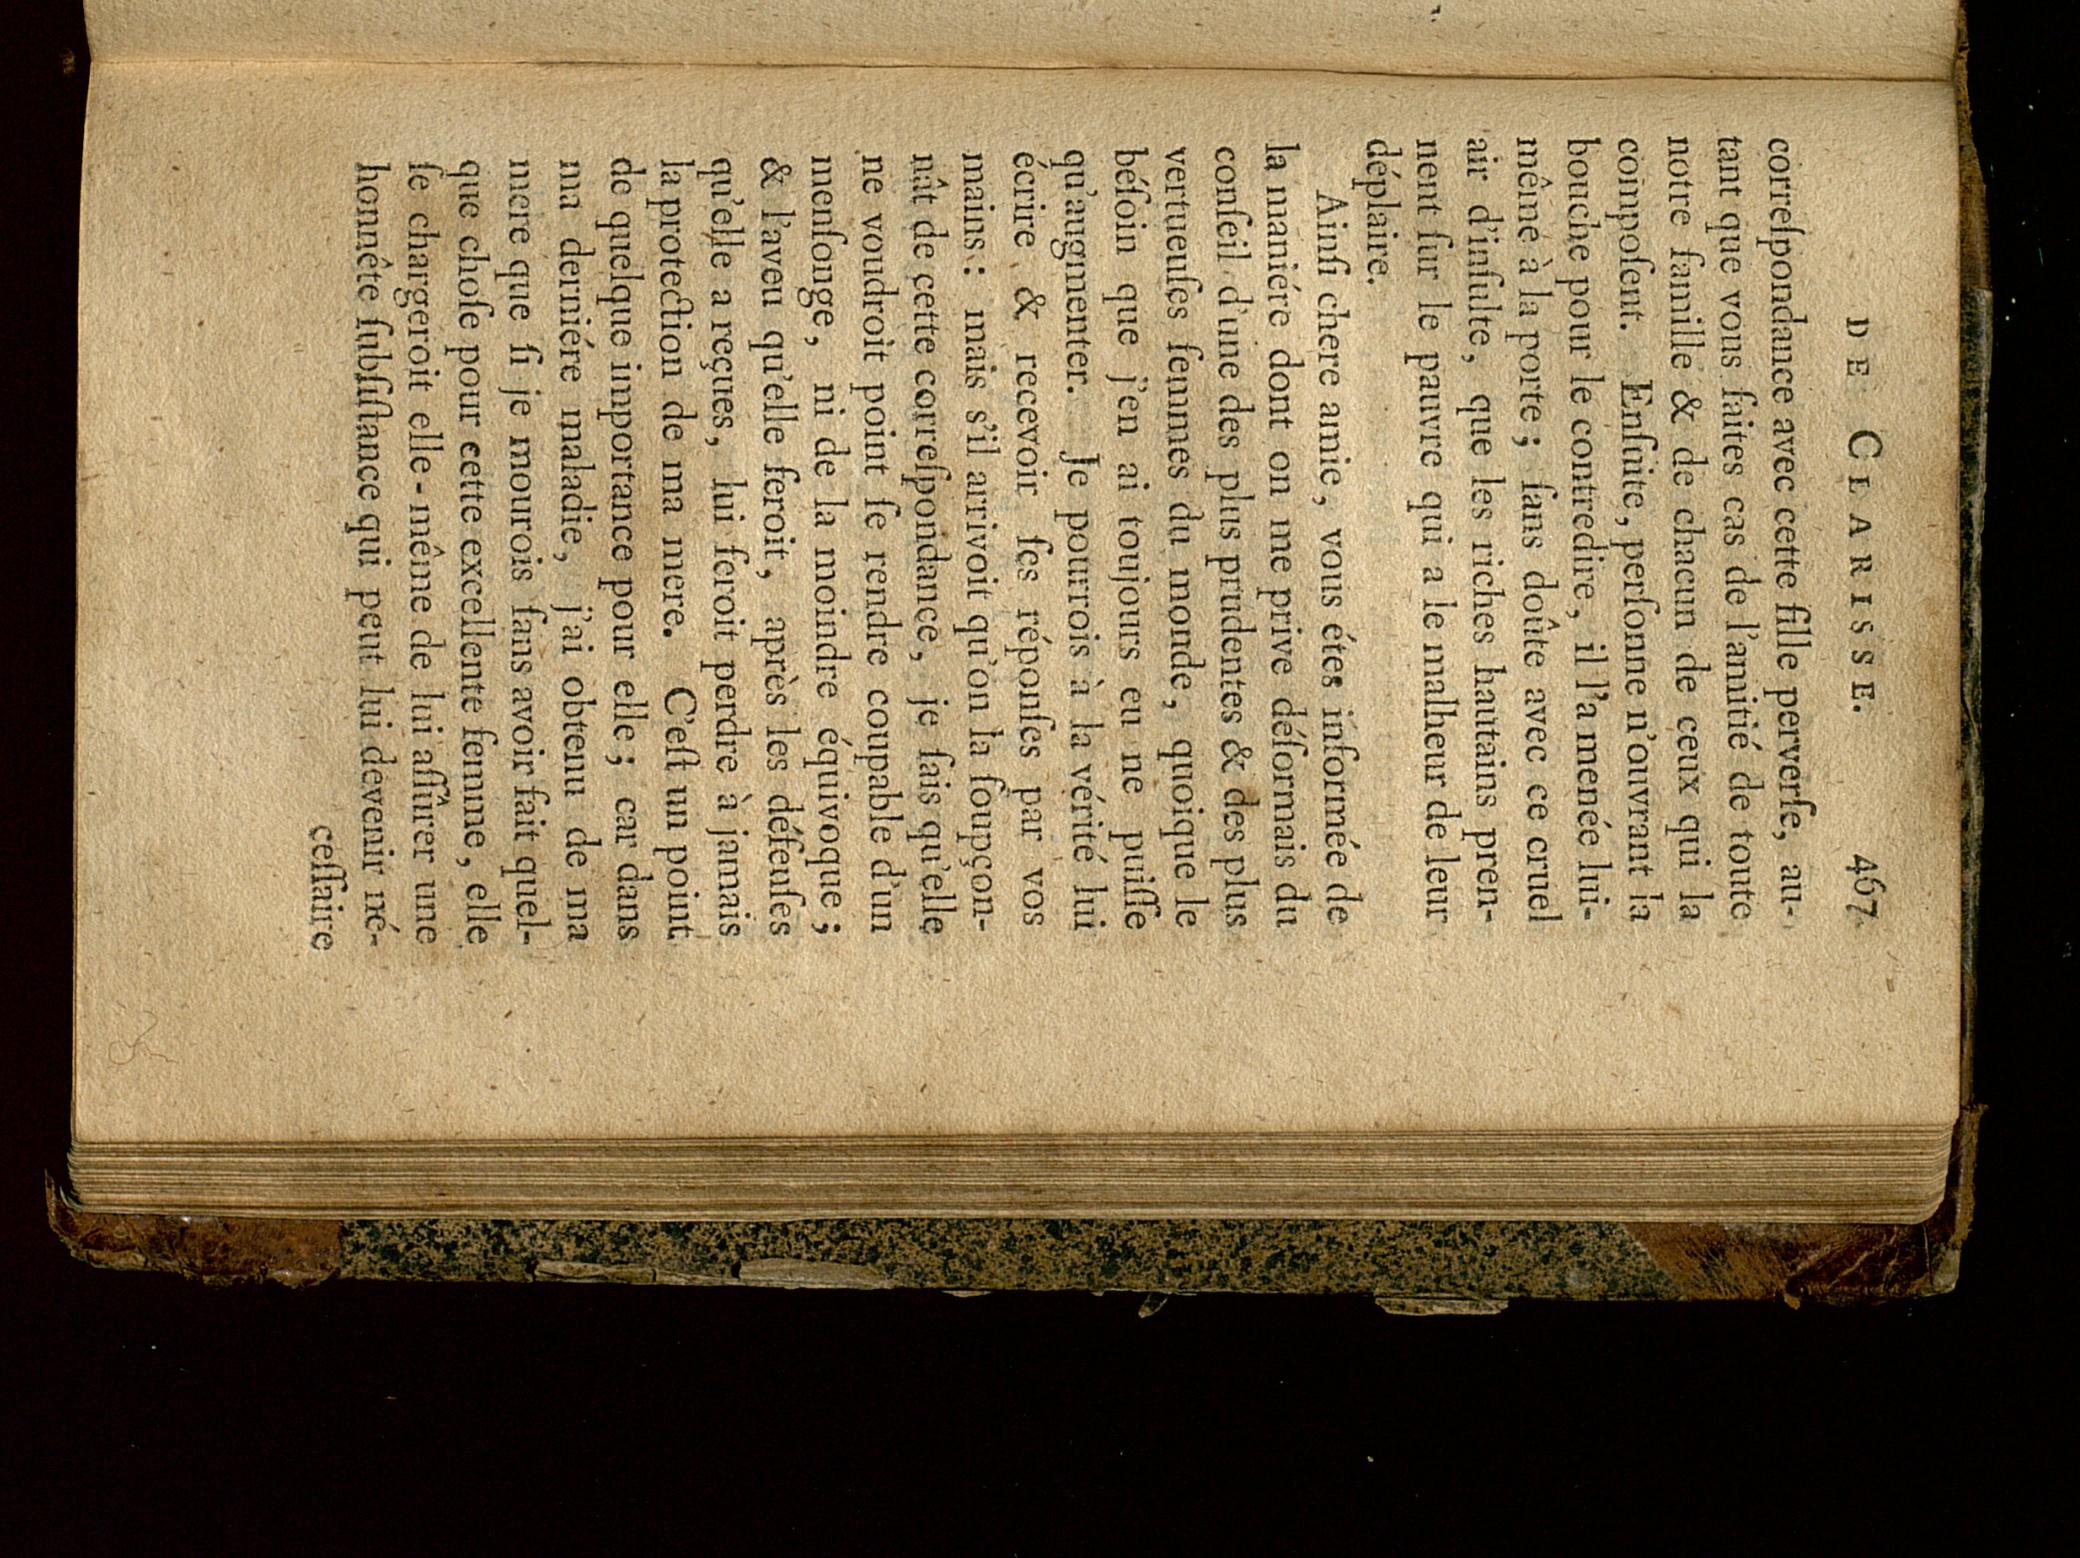 DE CLARISSE. 467
correſpondance avec cette fille perverſe, au-
tant que vous faites cas de l'amitié de toute
notre famille & de chacun de ceux qui la
compoſent. Enſuite, perſonne n'ouvrant la
bouche pour le contredire, il l'a menée lui-
même à la porte; ſans doûte avec ce cruel
air d'inſulte, que les riches hautains pren-
nent ſur le pauvre qui a le malheur de leur
déplaire.
Ainſi chere amie, vous étes informée de
la maniére dont on me prive déſormais du
conſeil d'une des plus prudentes & des plus
vertueuſes femmes du monde, quoique le
béſoin que j'en ai toujours eu ne puiſſe
qu'augmenter. Je pourrois à la vérité lui
écrire & recevoir ſes réponſes par vos
mains: mais s'il arrivoit qu'on la ſoupçon-
nât de cette correſpondance, je ſais qu'elle
ne voudroit point ſe rendre coupable d'un
menſonge, ni de la moindre équivoque;
& l'aveu qu'elle feroit, après les défenſes
qu'elle a reçues, lui feroit perdre à jamais
la protection de ma mere. C'eſt un point
de quelque importance pour elle; car dans
ma derniére maladie, j'ai obtenu de ma
mere que ſi je mourois ſans avoir fait quel-
que choſe pour cette excellente femme, elle
ſe chargeroit elle-même de lui aſſûrer une
honnête ſubſiſtance qui peut lui devenir né-
ceſſaire